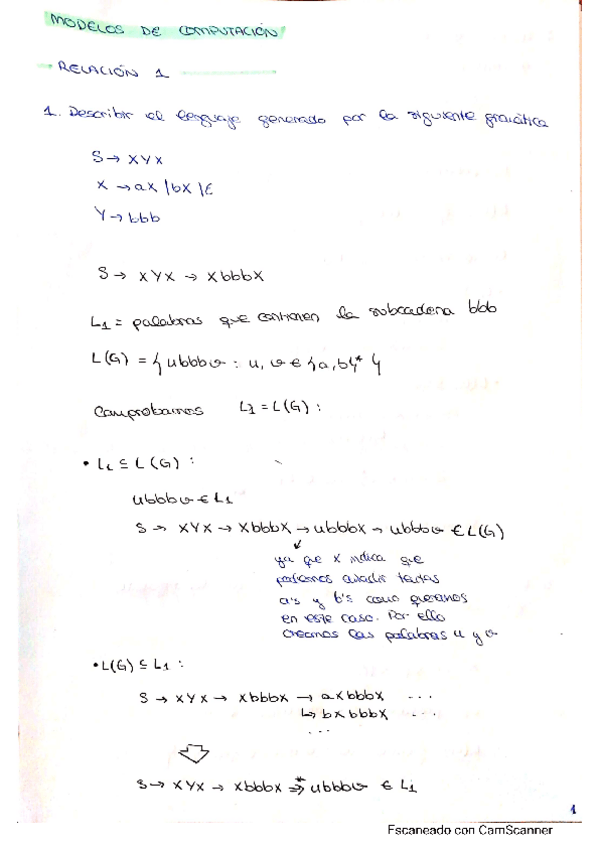 MODELOS DE COMPUTACIÓN
RELACIÓN 1
1. Describir el lenguaje generado por la siguiente gramática
S → XYX
X → aX | bX | ε
Y → bbb
S → XYX → XbbbX
L1 = palabras que contienen la subcadena bbb
L(G) = { ubbbv : u, v ∈ {a,b}* }
Comprobamos L1 = L(G) :
• L1 ⊆ L(G) :
ubbbv ∈ L1
S → XYX → XbbbX → ubbbX → ubbbv ∈ L(G)
ya que X indica que
podemos añadir tantas
a's y b's como queramos
en este caso. Por ello
creamos las palabras u y v
• L(G) ⊆ L1 :
S → XYX → XbbbX → aXbbbX ...
↳ bXbbbX ...
...
S → XYX → XbbbX ⇒* ubbbv ∈ L1
1
Escaneado con CamScanner